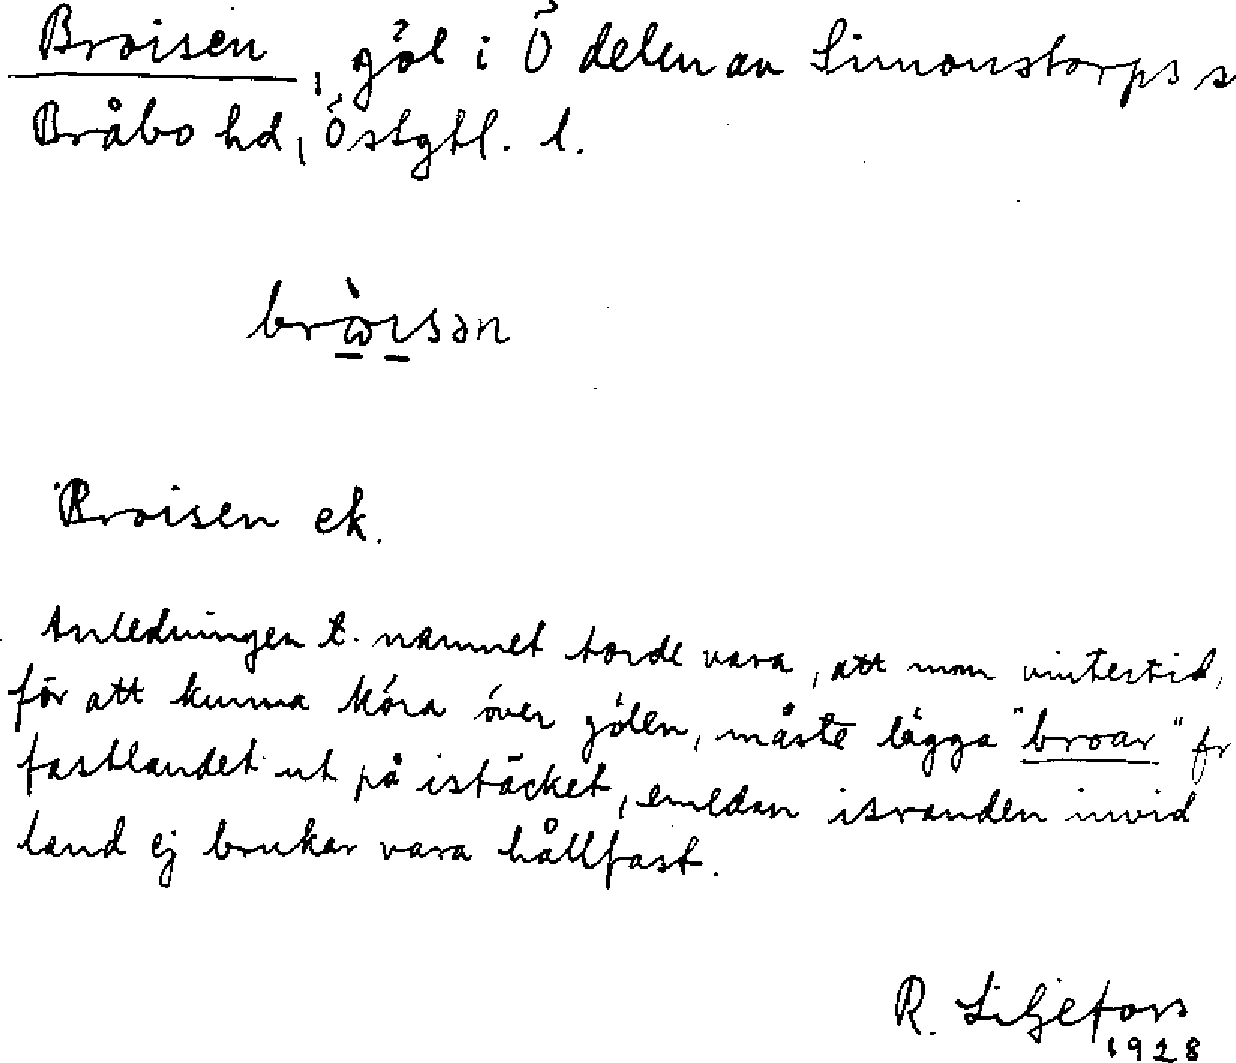 Broisen, göl i Ö delen av Simonstorps s
Bråbo hd, Östgtl. l.
brɷ̀ısən
Broisen ek.
Anledningen t. namnet torde vara, att man vintertid,
för att kunna köra över gölen, måste lägga "broar" fr
fastlandet ut på istäcket, emedan isranden invid
land ej brukar vara hållfast.
R. Liljefors
1928